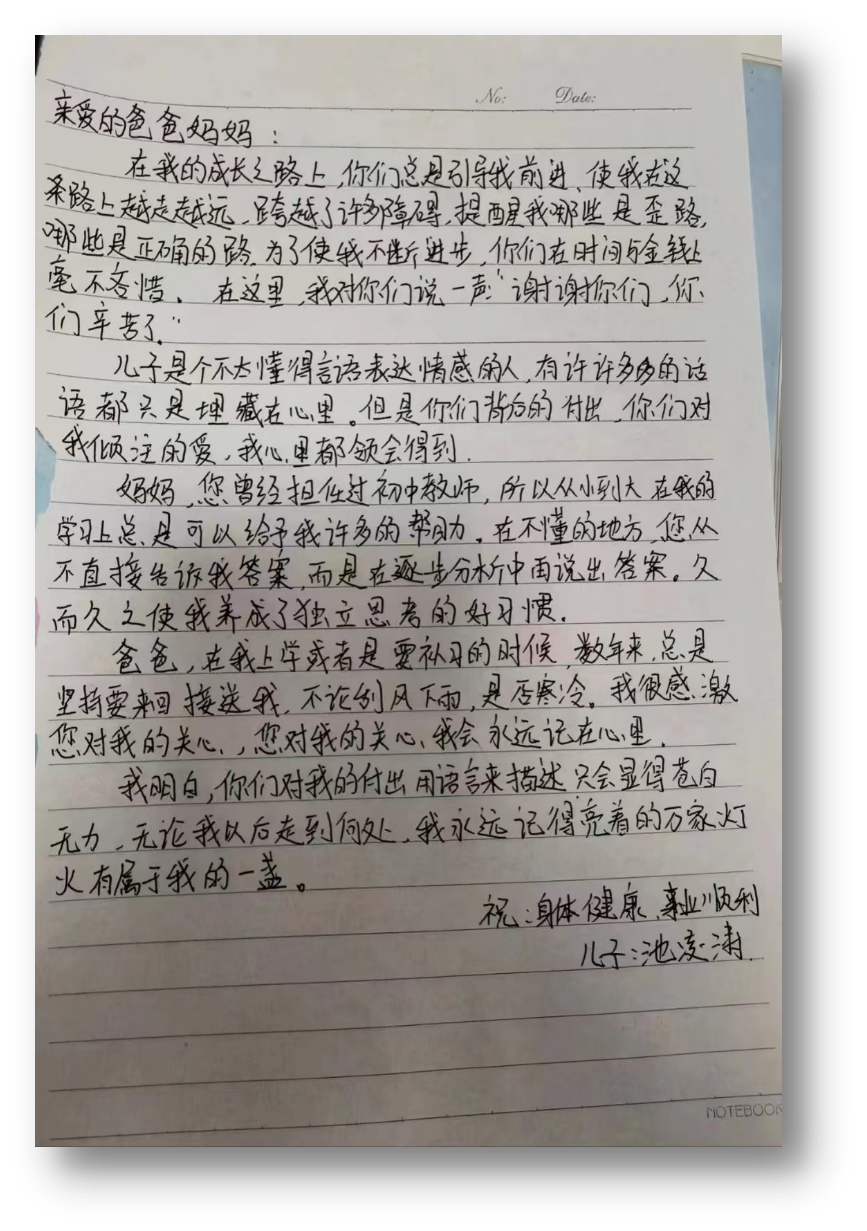 No:   Date:
亲爱的爸爸妈妈：
在我的成长之路上，你们总是引导我前进、使我在这
条路上越走越远，跨越了许多障碍，提醒我哪些是歪路，
哪些是正确的路。为了使我不断进步，你们在时间与金钱上
毫不吝惜。在这里，我对你们说一声：“谢谢你们，你
们辛苦了。”
儿子是个不太懂得言语表达情感的人，有许许多多的话
语都只是埋藏在心里。但是你们背后的付出，你们对
我倾注的爱，我心里都领会得到。
妈妈，您曾经担任过初中教师，所以从小到大在我的
学习上总是可以给予我许多的帮助。在不懂的地方，您从
不直接告诉我答案，而是在逐步分析中再说出答案。久
而久之使我养成了独立思考的好习惯。
爸爸，在我上学或者是要补习的时候，数年来，总是
坚持要来回接送我，不论刮风下雨，是否寒冷。我很感激
您对我的关心，，您对我的关心、我会永远记在心里。
我明白，你们对我的付出用语言来描述只会显得苍白
无力，无论我以后走到何处，我永远记得亮着的万家灯
火有属于我的一盏。
祝：身体健康、事业顺利
儿子：池凌涛
NOTEBOOK